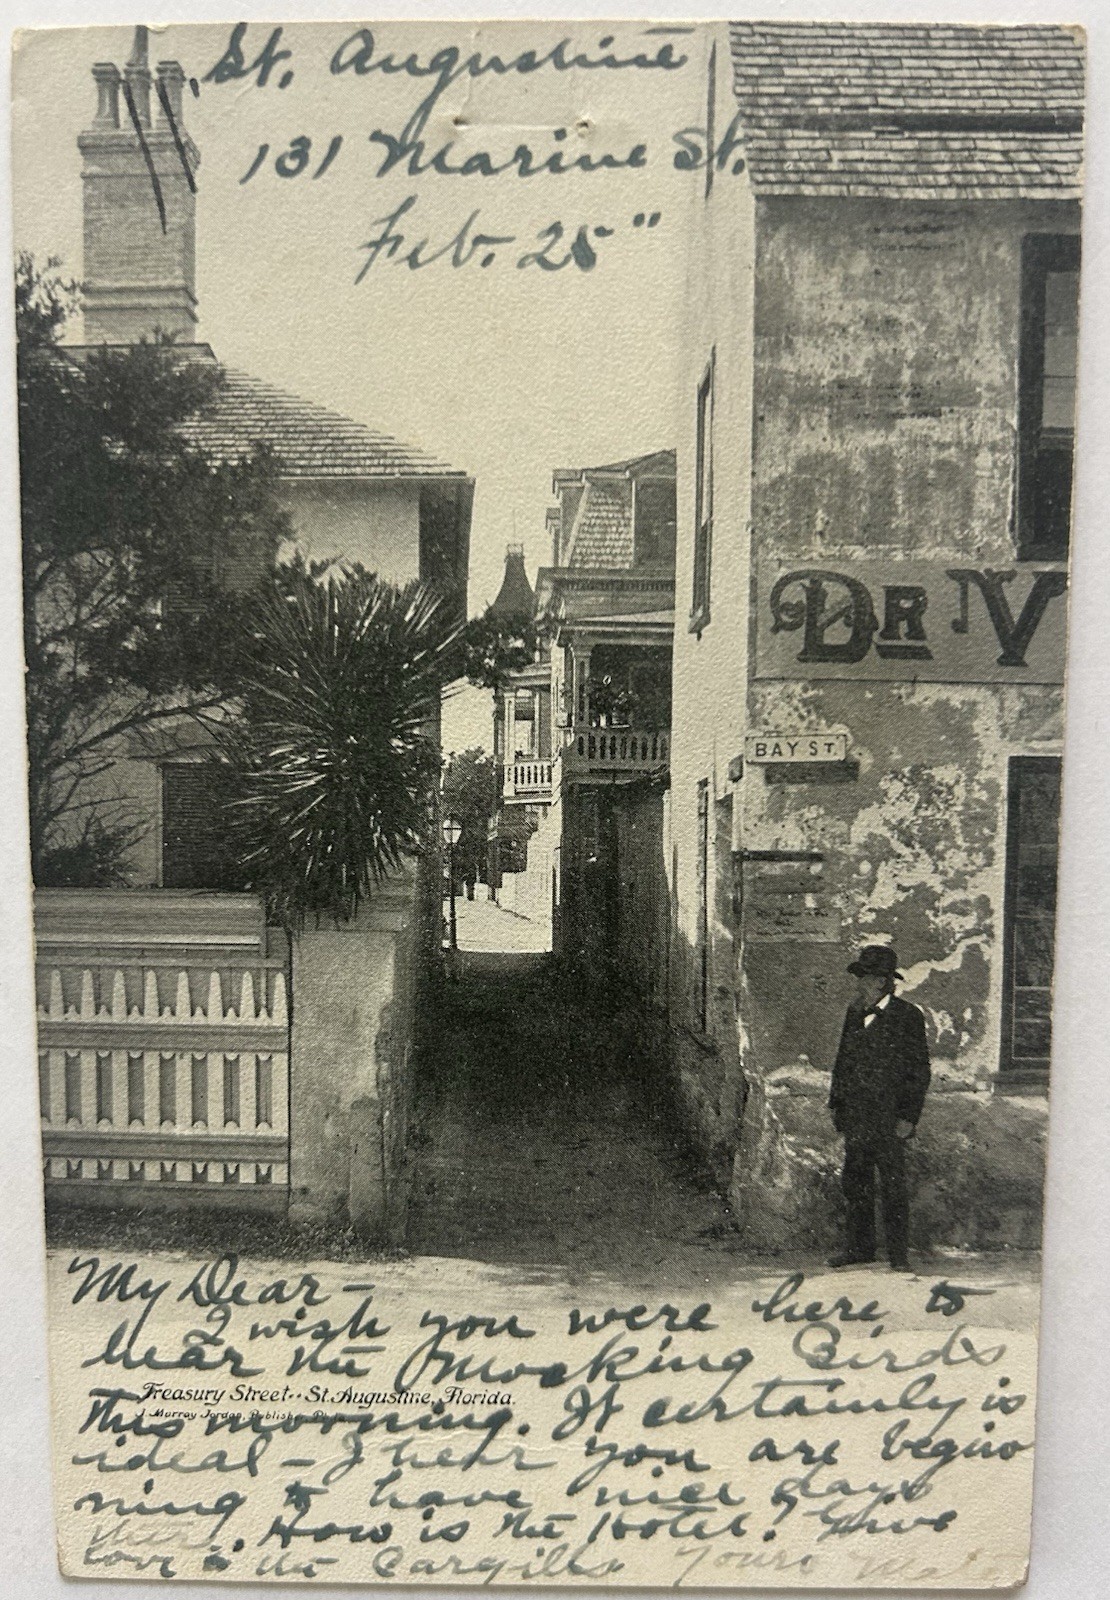 St. Augustine
131 Marine St.
Feb. 25"
DR V
BAY ST.
My Dear –
I wish you were here to
hear the Mocking Birds
Treasury Street·· St. Augustine, Florida.
J. Murray Jordan, Publisher
this morning. It certainly is
ideal – I hear you are begin
ning to have nice days
How is the Hotel? Give
love to the Cargills Yours